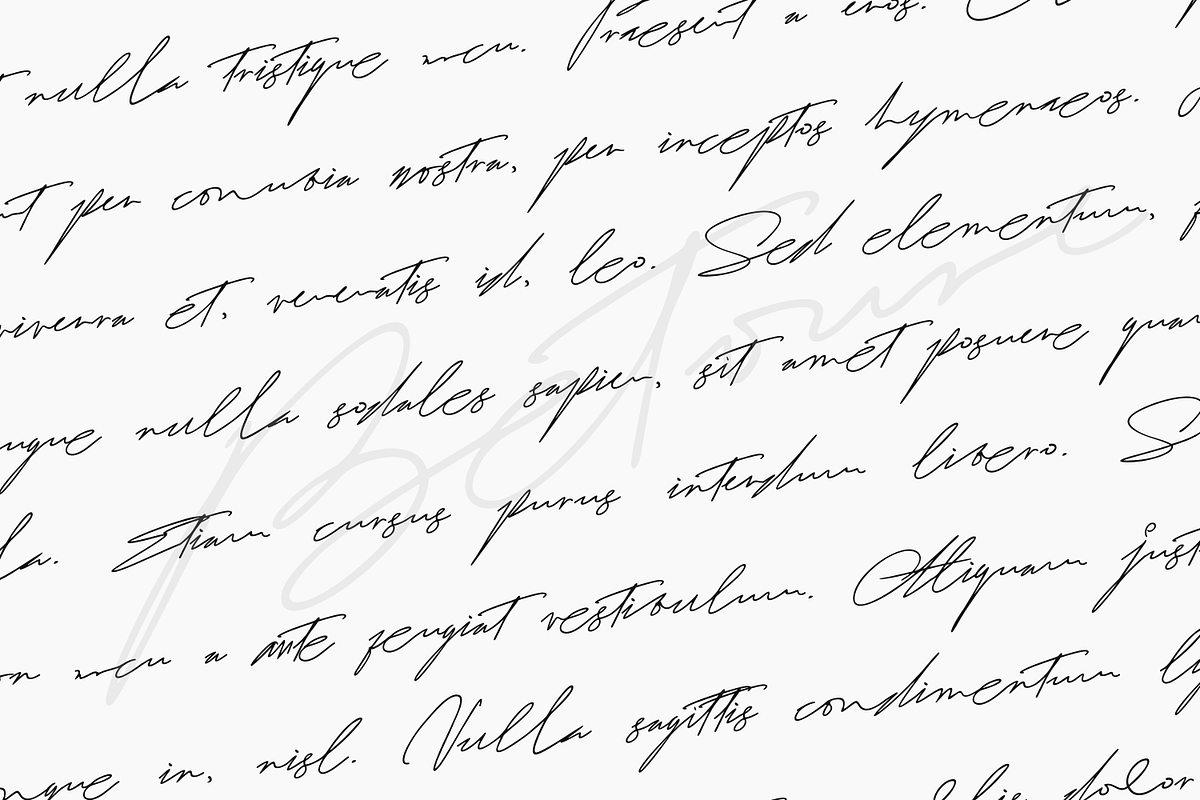 nulla tristique arcu. Praesent a eros.
per conubia nostra, per inceptos hymenaeos.
viverra et, venenatis id, leo. Sed elementum,
Betour
nulla sodales sapien, sit amet posuere
Etiam cursus purus interdum libero.
arcu a ante feugiat vestibulum. Aliquam
in, nisl. Nulla sagittis condimentum
dolor